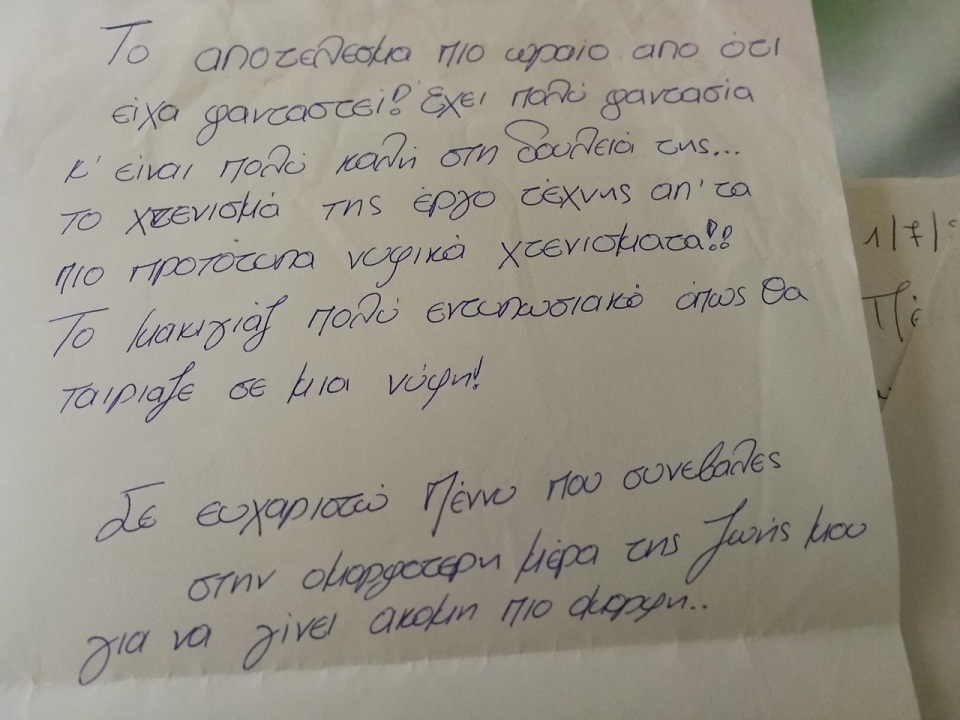 Το αποτελεσμα πιο ωραιο απο ότι
είχα φανταστεί! Έχει πολύ φαντασία
κ' είναι πολύ καλή στη δουλειά της...
το χτενισμά της έργο τέχνης απ' τα
πιο πρωτότυπα νυφικά χτενισματα!!
Το μακιγιάζ πολύ εντυπωσιακό όπως θα
ταιριαζε σε μια νύφη!
Σε ευχαριστώ Πέννυ που συνεβαλες
στην ομορφοτερη μέρα της ζωής μου
για να γίνει ακομη πιο όμορφη..
1/7/